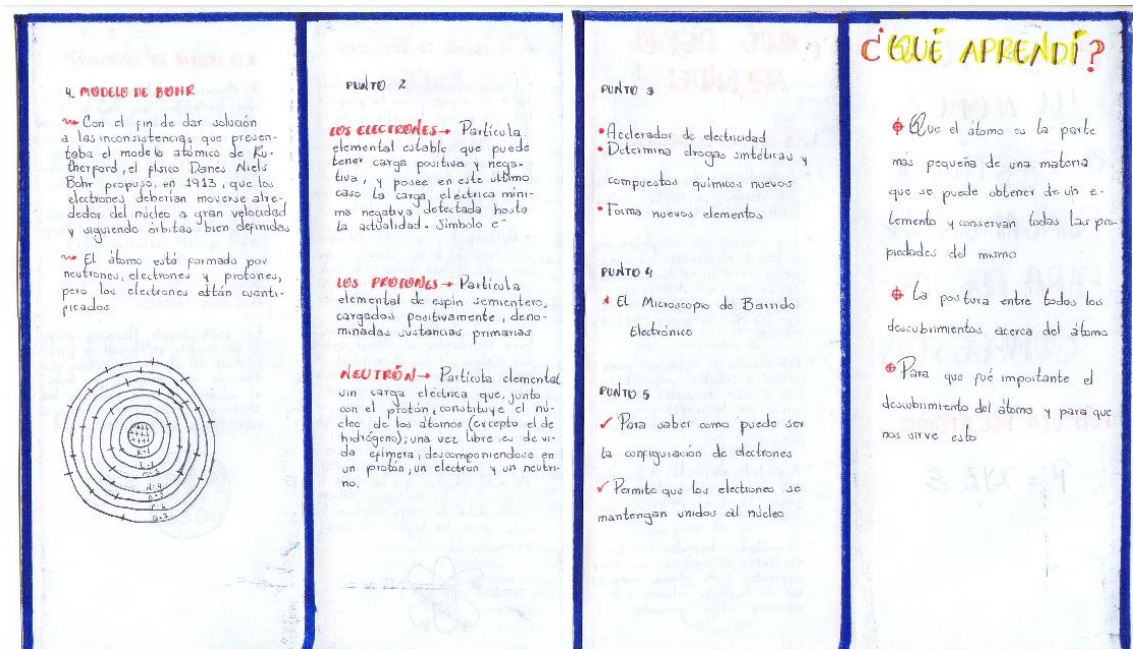 4. MODELO DE BOHR
Con el fin de dar solución
a las inconsistencias que presen-
taba el modelo atómico de Ru-
therford, el físico Danes Niels
Bohr propuso, en 1913, que los
electrones deberían moverse alre-
dedor del núcleo a gran velocidad
y siguiendo órbitas bien definidas
El átomo está formado por
neutrones, electrones y protones,
pero los electrones están cuanti-
ficados
PUNTO 2
LOS ELECTRONES→ Partícula
elemental estable que puede
tener carga positiva y nega-
tiva, y posee en este último
caso la carga eléctrica míni-
ma negativa detectada hasta
la actualidad. Símbolo e⁻
LOS PROTONES→ Partícula
elemental de espín semientero,
cargados positivamente, deno-
minadas sustancias primarias
NEUTRÓN→ Partícula elemental
sin carga eléctrica que, junto
con el protón, constituye el nú-
cleo de los átomos (excepto el de
hidrógeno); una vez libre es de vi-
da efímera, descomponiendose en
un protón, un electron y un neutri-
no.
PUNTO 3
• Acelerador de electricidad
• Determina drogas sintéticas y
compuestos químicos nuevos
• Forma nuevos elementos
PUNTO 4
El Microscopio de Barrido
Electrónico
PUNTO 5
✓ Para saber como puede ser
la configuración de electrones
✓ Permite que los electrones se
mantengan unidos al núcleo
¿QUÉ APRENDÍ?
Que el átomo es la parte
más pequeña de una materia
que se puede obtener de un e-
lemento y conservan todas las pro-
piedades del mismo
La postura entre todos los
descubrimientos acerca del átomo
Para que fué importante el
descubrimiento del átomo y para que
nos sirve esto